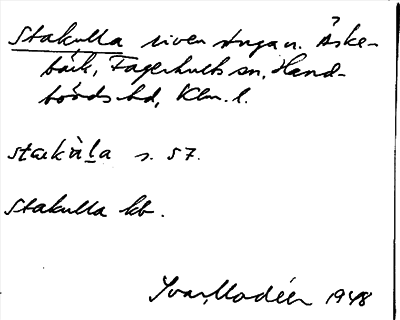 Stakulla riven stuga u. Äske-
bäck, Fagerhults sn, Hand-
börds hd, Klm. l.
stakùḷa s. 57.
Stakulla kb.
Ivar Modéer 1948